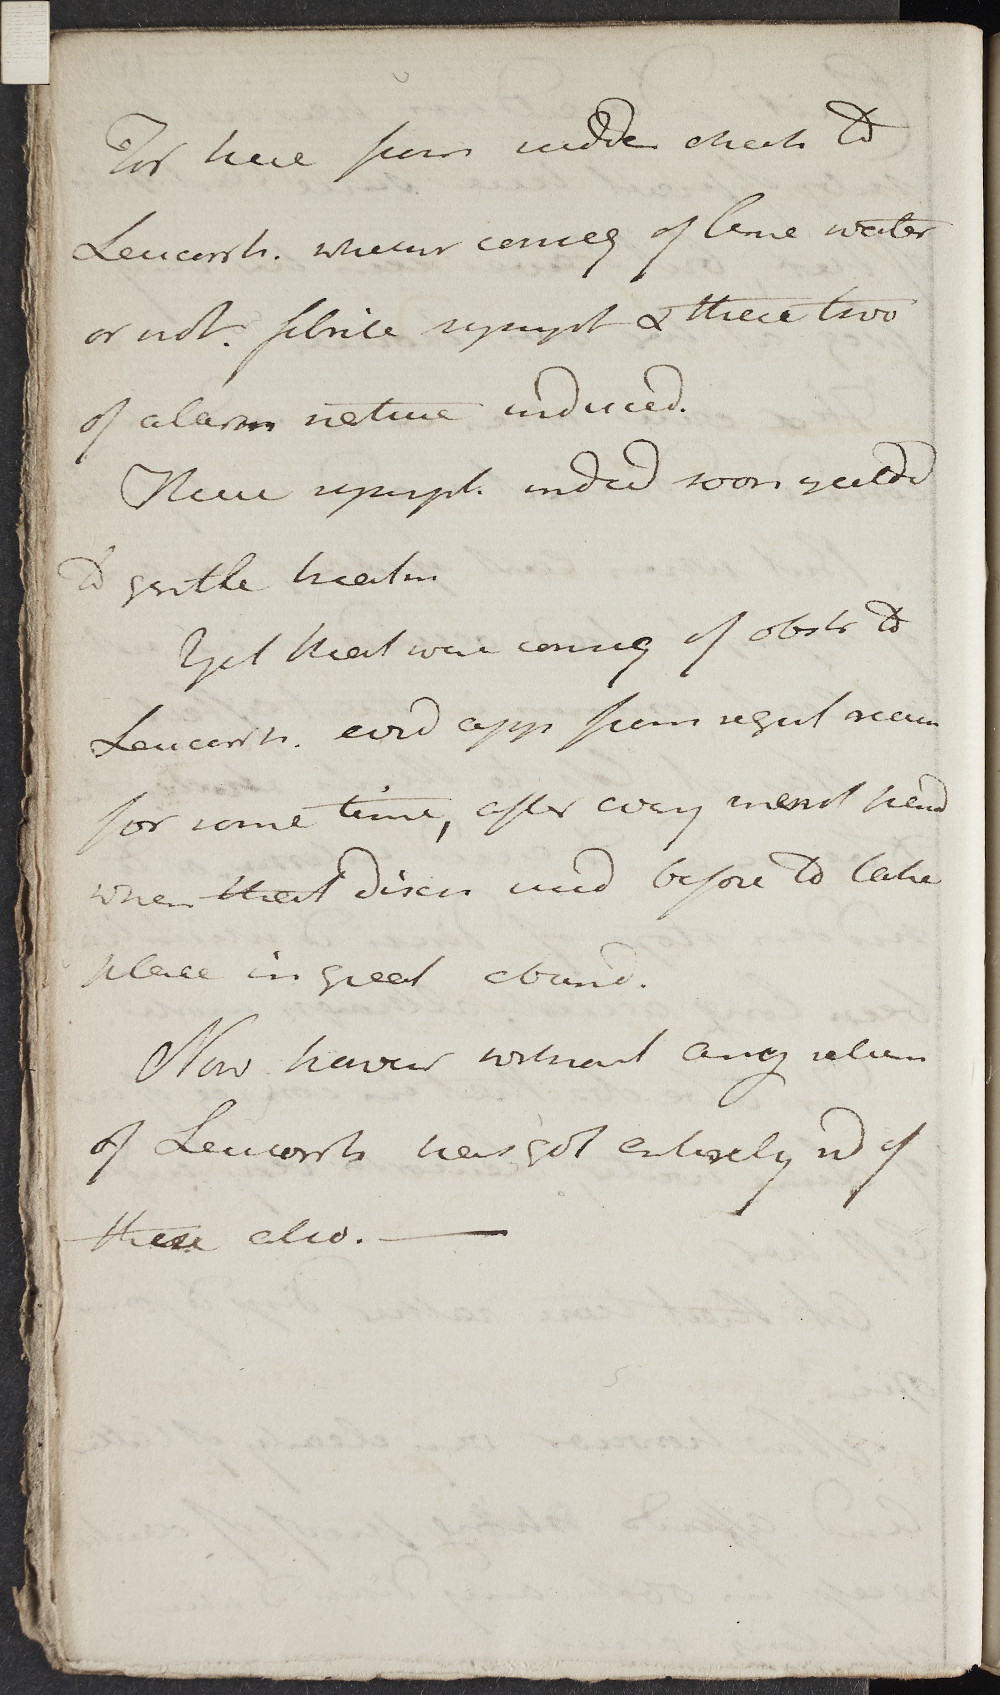 For here from sudden check to
Leucorrh. whethr conseq of lime water
or not. febrile sympt & these two
of alarm nature induced.
These sympt. indeed soon yeeldd
to gentle treatm
Yet that were conseq of obstr to
Leucorrh. evid app from regul recur
for some time, after every menst period
when that disch used before to take
place in great abund.
Now howevr without any return
of Leucorrh has got entirely rid of
these also. —